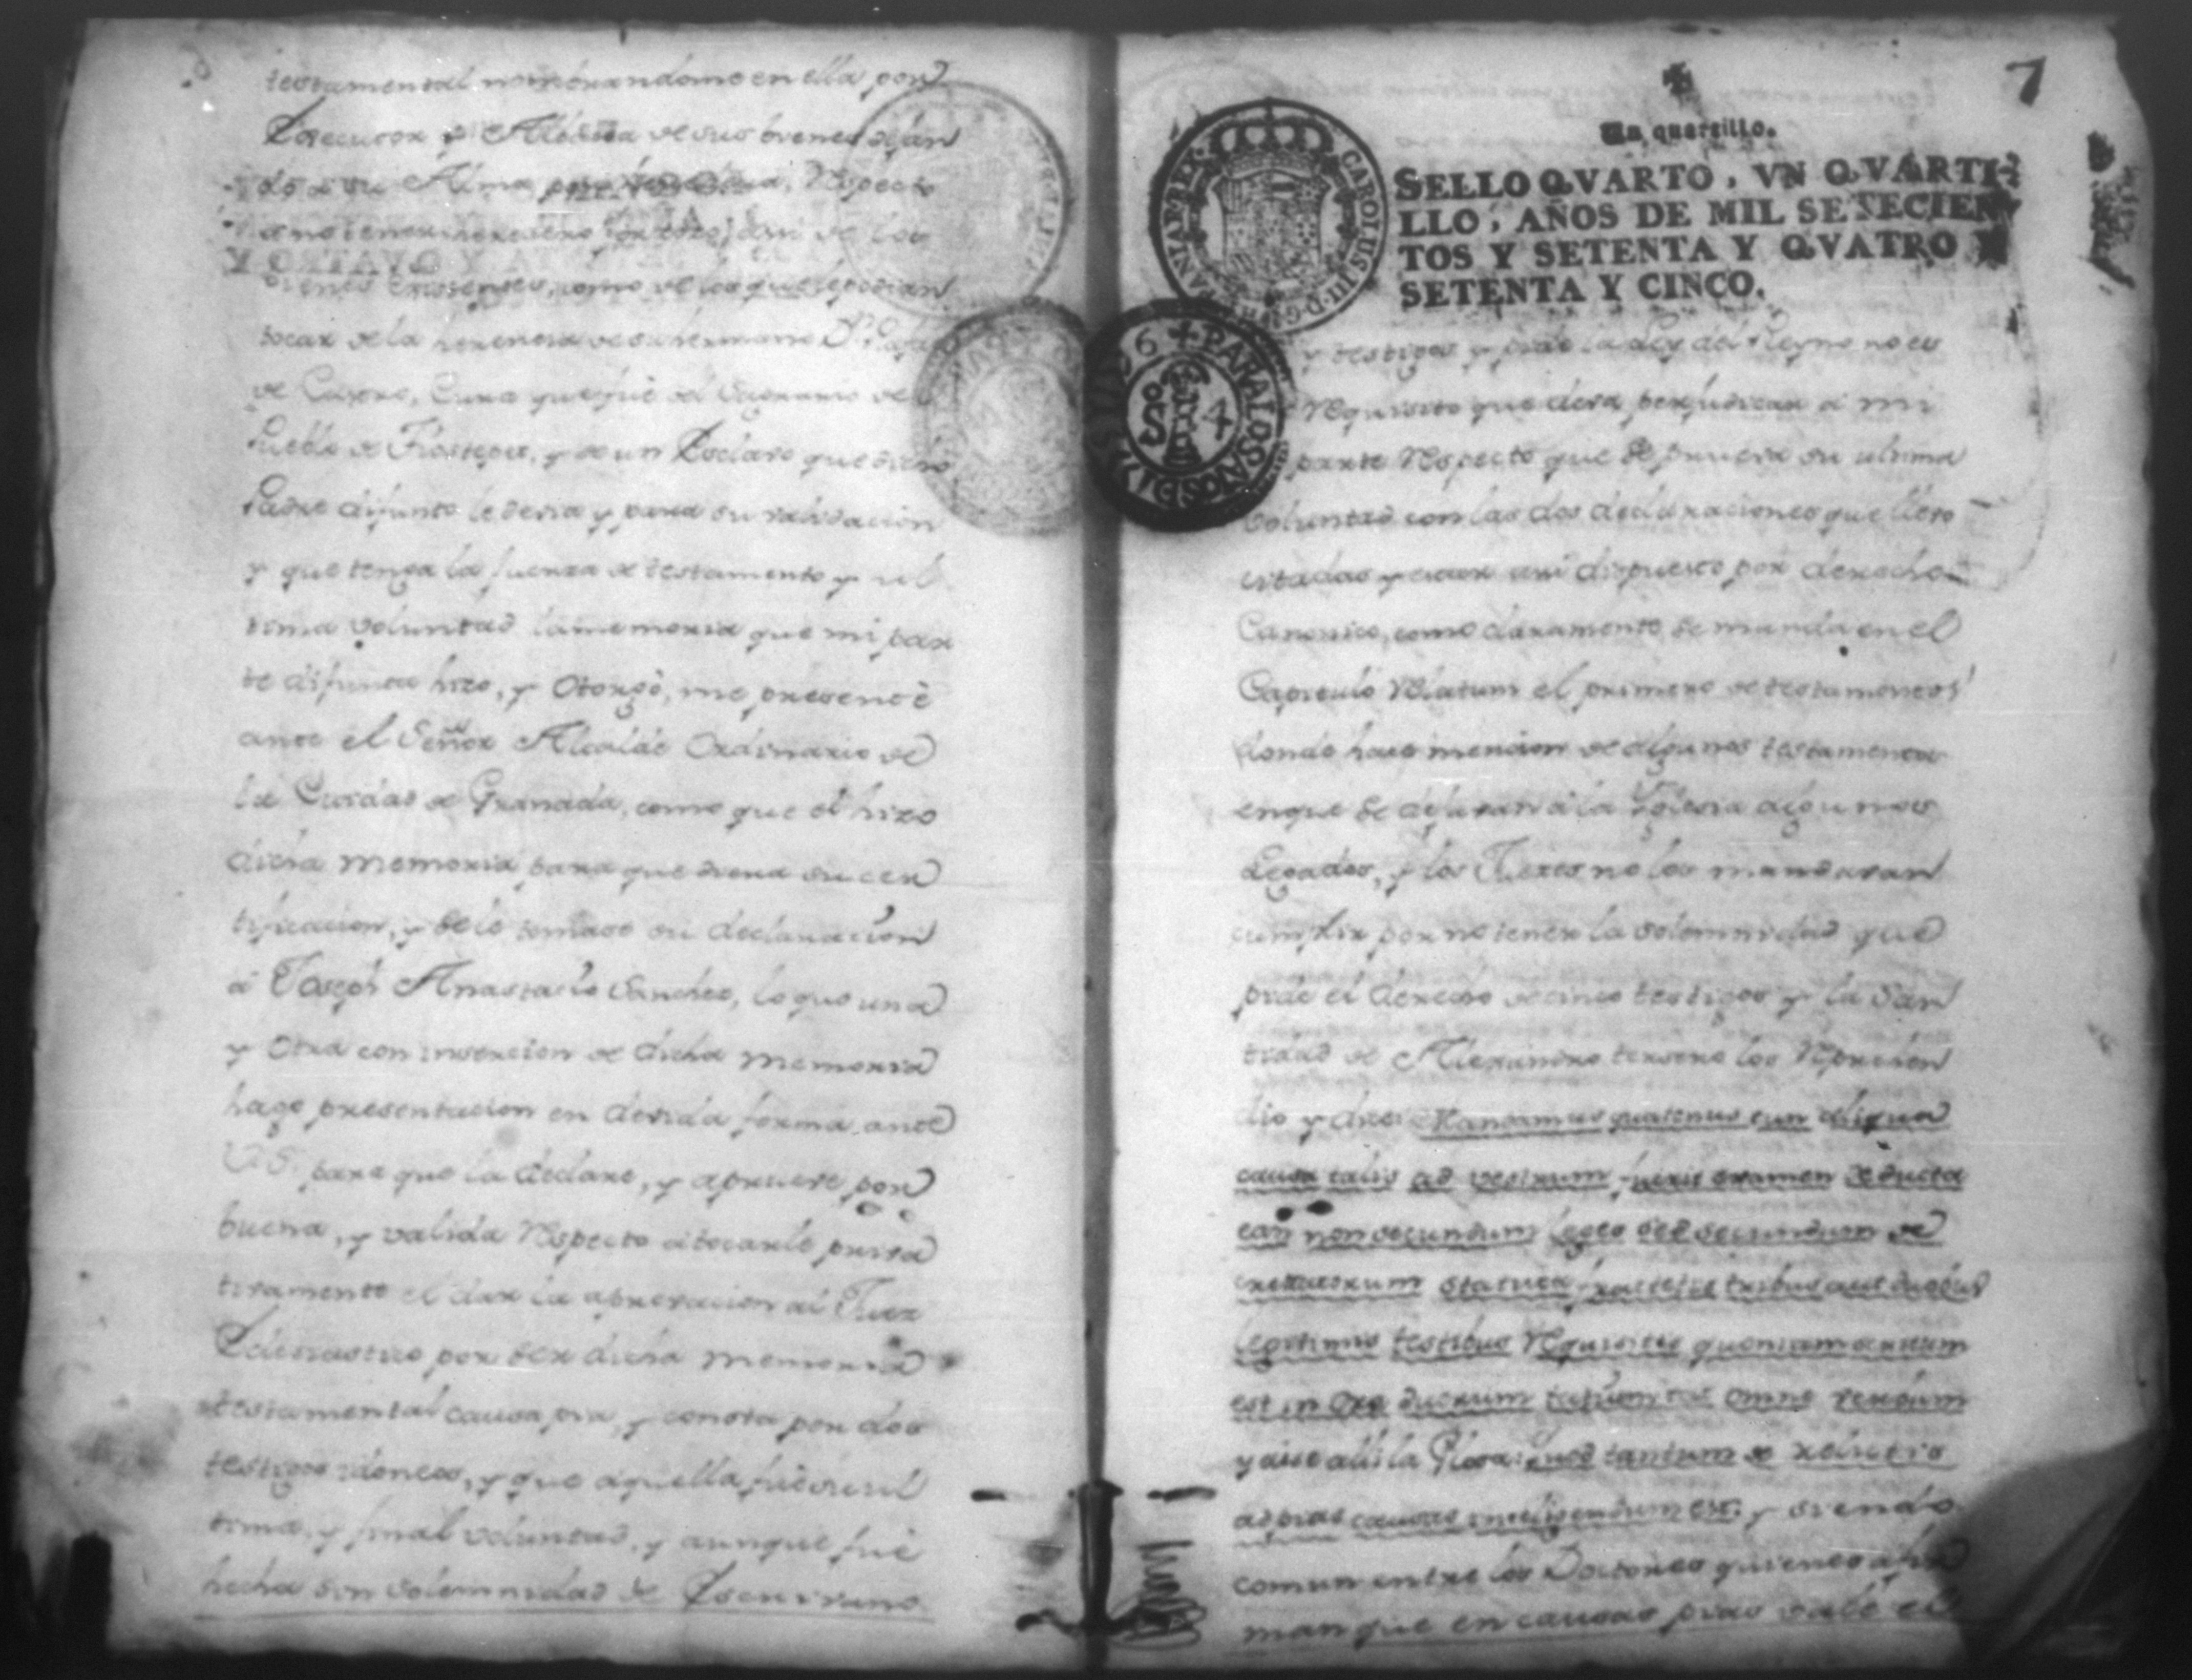 testamental nombrandome en ella por
Executor y Albacea de sus bienes dejan
do a su Alma por heredera, Respecto
a no tener heredero forzozo, assi de los
bienes existentes, como de los que le podian
tocar de la herencia de su hermano Dn.
de Castro, Cura que fue del Sagrario del
Pueblo de , y de un Esclavo que dicho
Padre difunto le devia y para su validacion
y que tenga la fuerza de testamento y ul
tima voluntad la memoria que mi par
te difunta hizo, y Otorgò, me presentè
ante el Señor Alcalde Ordinario de
la Ciudad de Granada, como que el hizo
dicha memoria para que diera su cer
tificacion, y se le tomase su declaracion
a Joseph Anastacio Sanches, lo que una
y Otra con insercion de dicha memoria
hago presentacion en devida forma, ante
VS. para que la declare, y aprueve por
buena, y valida Respecto a tocarle priva
tivamente el dar la aprovacion al Juez
Eclesiastico por ser dicha memoria
testamental causa pia, y consta por dos
testigos idoneos, y que aquella fue su ul
tima, y final voluntad, y aunque fue
hecha sin solemnidad de Escrivano
7
Un quartillo.
SELLO QVARTO, VN QVARTI-
LLO, AÑOS DE MIL SETECIEN
TOS Y SETENTA Y QVATRO Y
SETENTA Y CINCO.
CAROLUS III D G HISPANIAR REX
PARA LOS AÑOS DE 1775 Y 76
S 4
y testigos y pide la Ley del Reyno no es
Requisito que deva perjudicar a mi
parte Respecto que se prueva su ultima
voluntad con las dos declaraciones que llevo
citadas y estar assi dispuesto por derecho
Canonico, como claramente se manda en el
Capitulo Relatum el primero de testamentos
donde hace mencion de algunos testamentos
en que se dejavan a la Iglesia algunos
Legados, y los Jueces no los mandavan
cumplir por no tener la solemnidad que
pide el derecho de cinco testigos y la San
tidad de Alexandro tercero los Reprehen
dio y dice: Mandamus quatenus cum aliqua
causa talis ad vestrum fuerit examen deducta
eam non secundum leges sed secundum de
cretorum statuta tractetis tribus aut duobus
legitimis testibus Requisitis quoniam scriptum
est in Ore duorum vel trium testium stat Omne verbum
y dice alli la Glosa: quod tantum de relictis
ad pias causas inteligendum est: y siendo
comun entre los Doctores quienes afir
man que en causas pias vale el